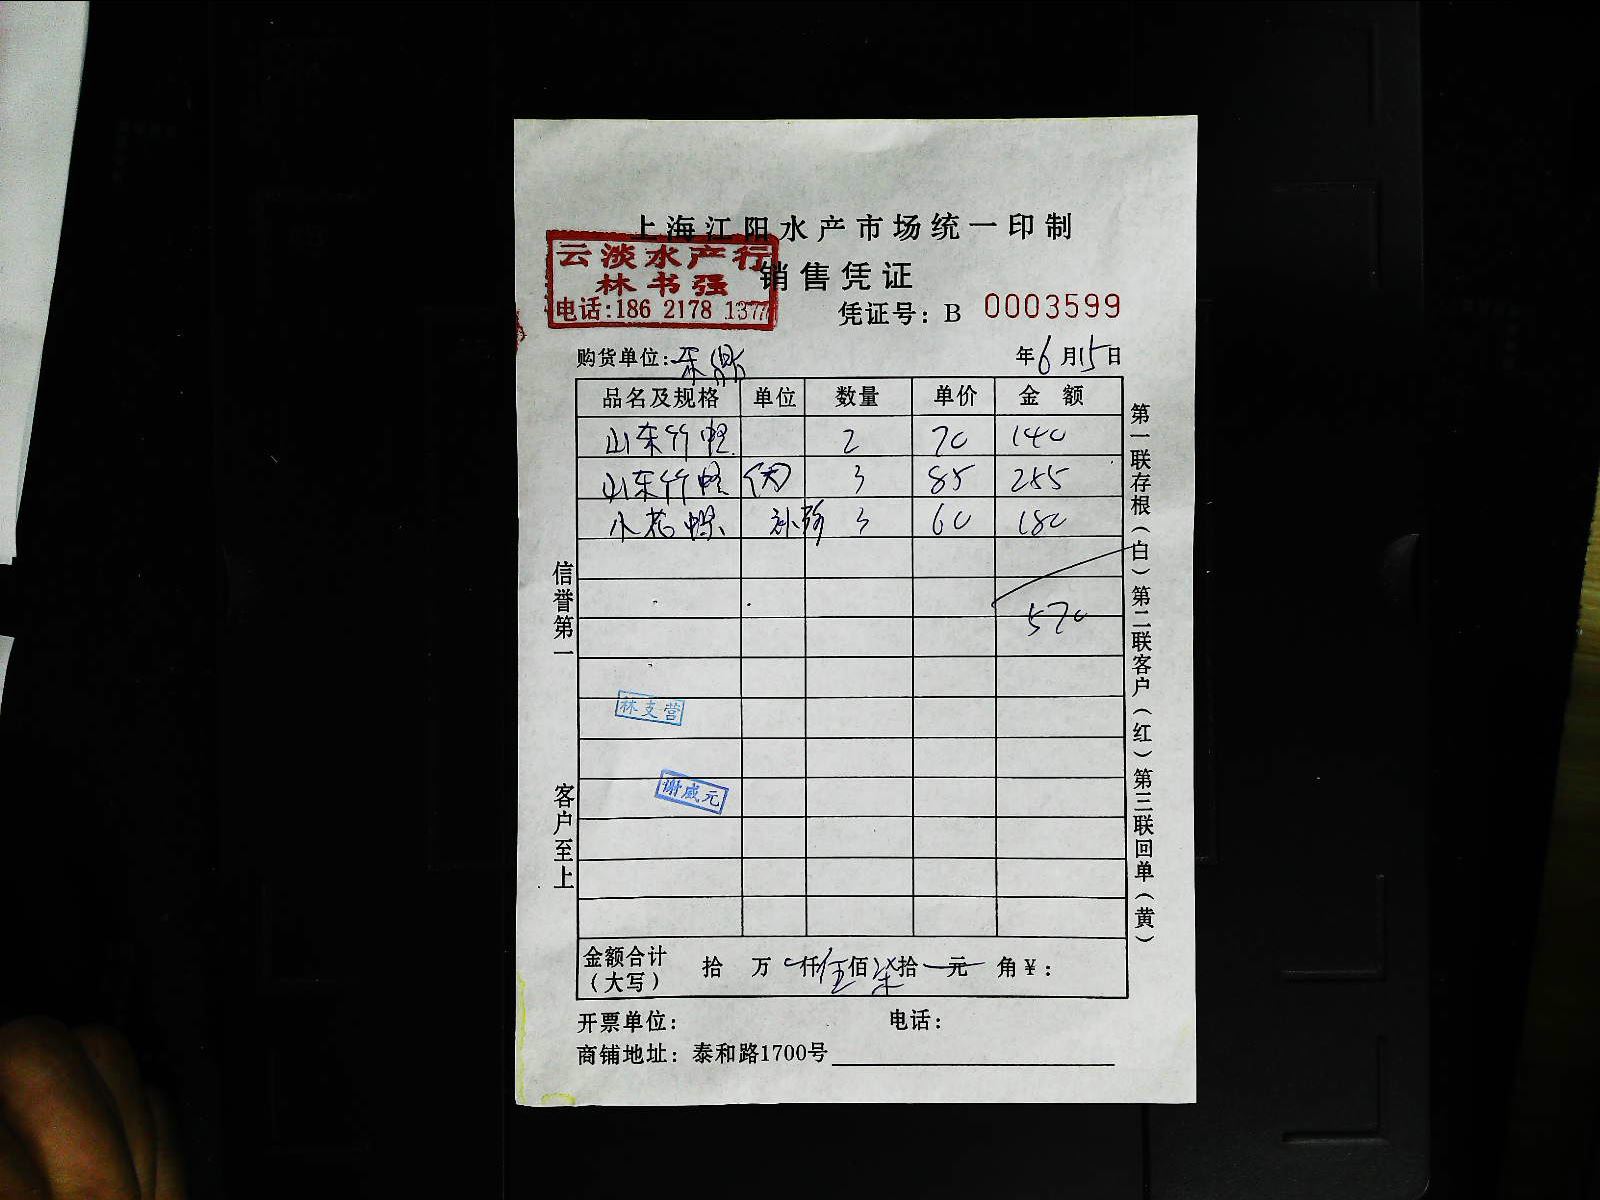 上海江阳水产市场统一印制
云淡水产行
林书强
电话:186 2178 1377
销售凭证
凭证号: B 0003599
购货单位: 年6月15日
品名及规格 单位 数量 单价 金额
山东竹蛏 2 70 140
山东竹蛏 (大) 3 85 255
小花螺 补 3 60 180
570
林支营
谢威元
信誉第一
客户至上
第一联存根(白)第二联客户(红)第三联回单(黄)
金额合计 拾 万 仟伍佰柒拾 元 角¥:
(大写)
开票单位: 电话:
商铺地址: 泰和路1700号